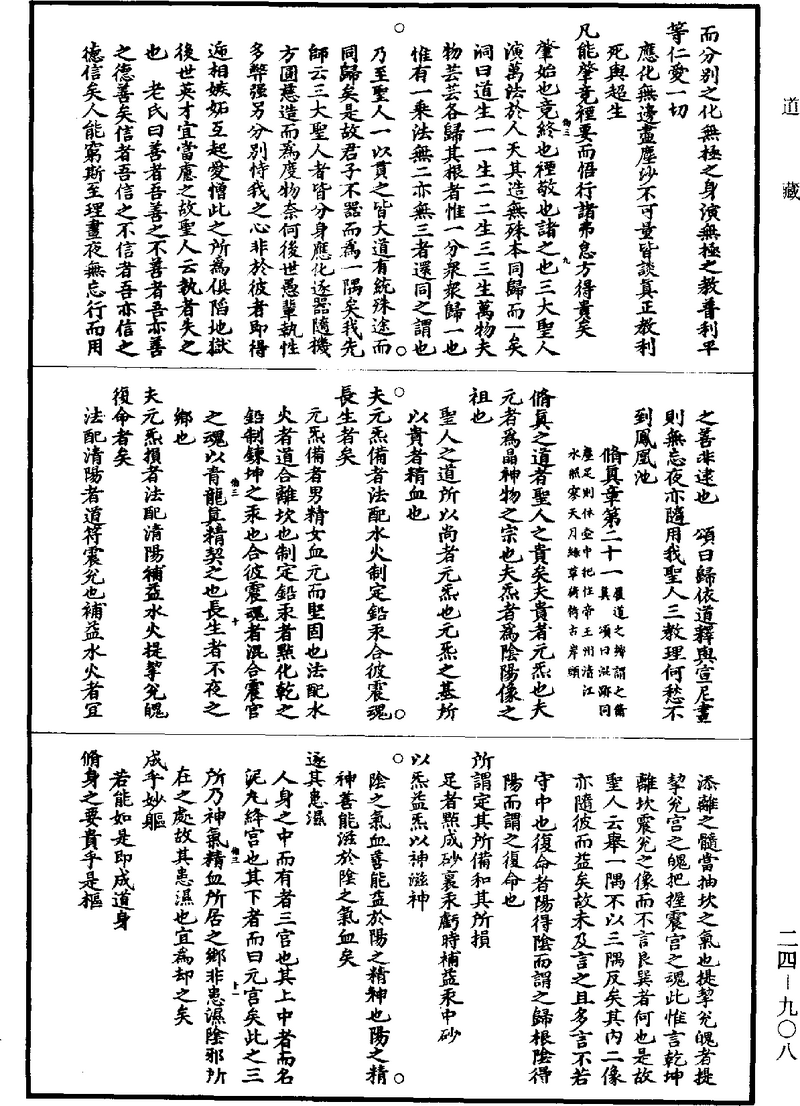 道藏
而分別之化無極之身演無極之教普利平
等仁愛一切
應化無邊盡塵沙不可量皆談真正教利
死與超生
凡能肇竟禋要而悟行諸弗怠方得貴矣
肇始也竟終也禋敬也諸之也三大聖人
演萬法於人天其造無殊本同歸而一矣
洞曰道生一一生二二生三三生萬物夫
物芸芸各歸其根者惟一分衆衆歸一也
惟有一乘法無二亦無三者還同之謂也
乃至聖人一以貫之皆大道有統殊途而
同歸矣是故君子不器而為一隅矣我先
師云三大聖人者皆分身應化逐器隨機
方圓慈造而為度物奈何後世愚輩執性
多弊強另分別恃我之心非於彼者即得
遞相嫉妬互起愛憎此之所為俱陷地獄
後世英才宜當慮之故聖人云執者失之
也　老氏曰善者吾善之不善者吾亦善
之德善矣信者吾信之不信者吾亦信之
德信矣人能窮斯至理晝夜無忘行而用
之善非逮也　頌曰歸依道釋與宣尼晝
則無忘夜亦隨用我聖人三教理何愁不
到鳳凰池
脩真章第二十一
履道之辯謂之脩
真　頌曰混跡同
塵足則休壺中把住帝王州清江
水照寒天月綠草猗猗古岸頭
脩真之道者聖人之貴矣夫貴者元炁也夫
元者為晶神物之宗也夫炁者為陰陽像之
祖也
聖人之道所以尚者元炁也元炁之基所
以貴者精血也
夫元炁備者法配水火制定鉛汞合彼震魂
長生者矣
元炁備者男精女血元而堅固也法配水
火者道合離坎也制定鉛汞者點化乾之
鉛制鍊坤之汞也合彼震魂者混合震官
之魂以青龍真精契之也長生者不夜之
鄉也
夫元炁損者法配清陽補益水火提挈兌魄
復命者矣
法配清陽者道符震兌也補益水火者宜
添離之髓當抽坎之氣也提挈兌魄者提
挈兌宮之魄把握震宮之魂此惟言乾坤
離坎震兌之像而不言艮巽者何也是故
聖人云舉一隅不以三隅反矣其內二像
亦隨彼而益矣故未及言之且多言不若
守中也復命者陽得陰而謂之歸根陰得
陽而謂之復命也
所謂定其所備和其所損
足者點成砂裏汞虧時補益汞中砂
以炁益炁以神滋神
陰之氣血善能益於陽之精神也陽之精
神善能滋於陰之氣血矣
逐其患濕
人身之中而有者三官也其上中者而名
泥丸絳宮也其下者而曰元宮矣此之三
所乃神氣精血所居之鄉非患濕陰邪所
在之處故其患濕也宜為却之矣
成乎妙軀
若能如是即成道身
脩身之要貴乎是樞
二四－九〇八